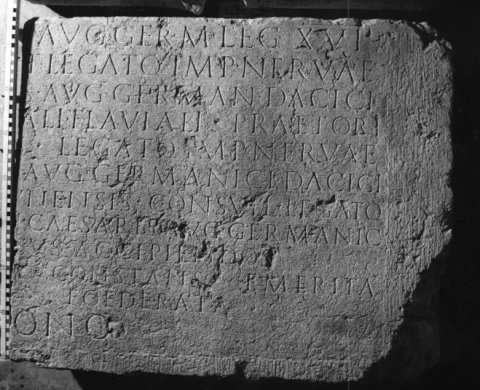 AVG GERM LEG XVI
LEGATO IMP NERVAE
AVG GERMAN DACICI
ALI FLAVIALI PRAETORI
LEGATO IMP NERVAE
AVG GERMANICI DACICI
NENSIS CONSVLI LEGATO
CAESARIS AVG GERMANIC

CONSTANTI EMERITA
FOEDERATA